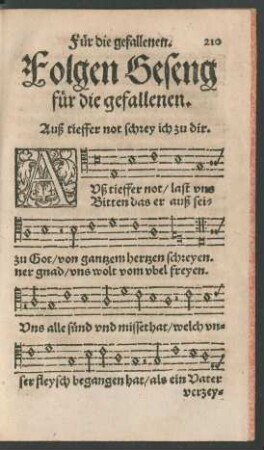 Für die gefallenen. 210
Folgen Geseng
für die gefallenen.
Auß tieffer not schrey ich zu dir.
AUß tieffer not / last vns
Bitten das er auß sei-
zu Got / von gantzem hertzen schreyen.
ner gnad / vns wolt vom vbel freyen.
Vns alle sünd vnd missethat / welch vn-
ser fleysch begangen hat / als ein Vater
verzey-